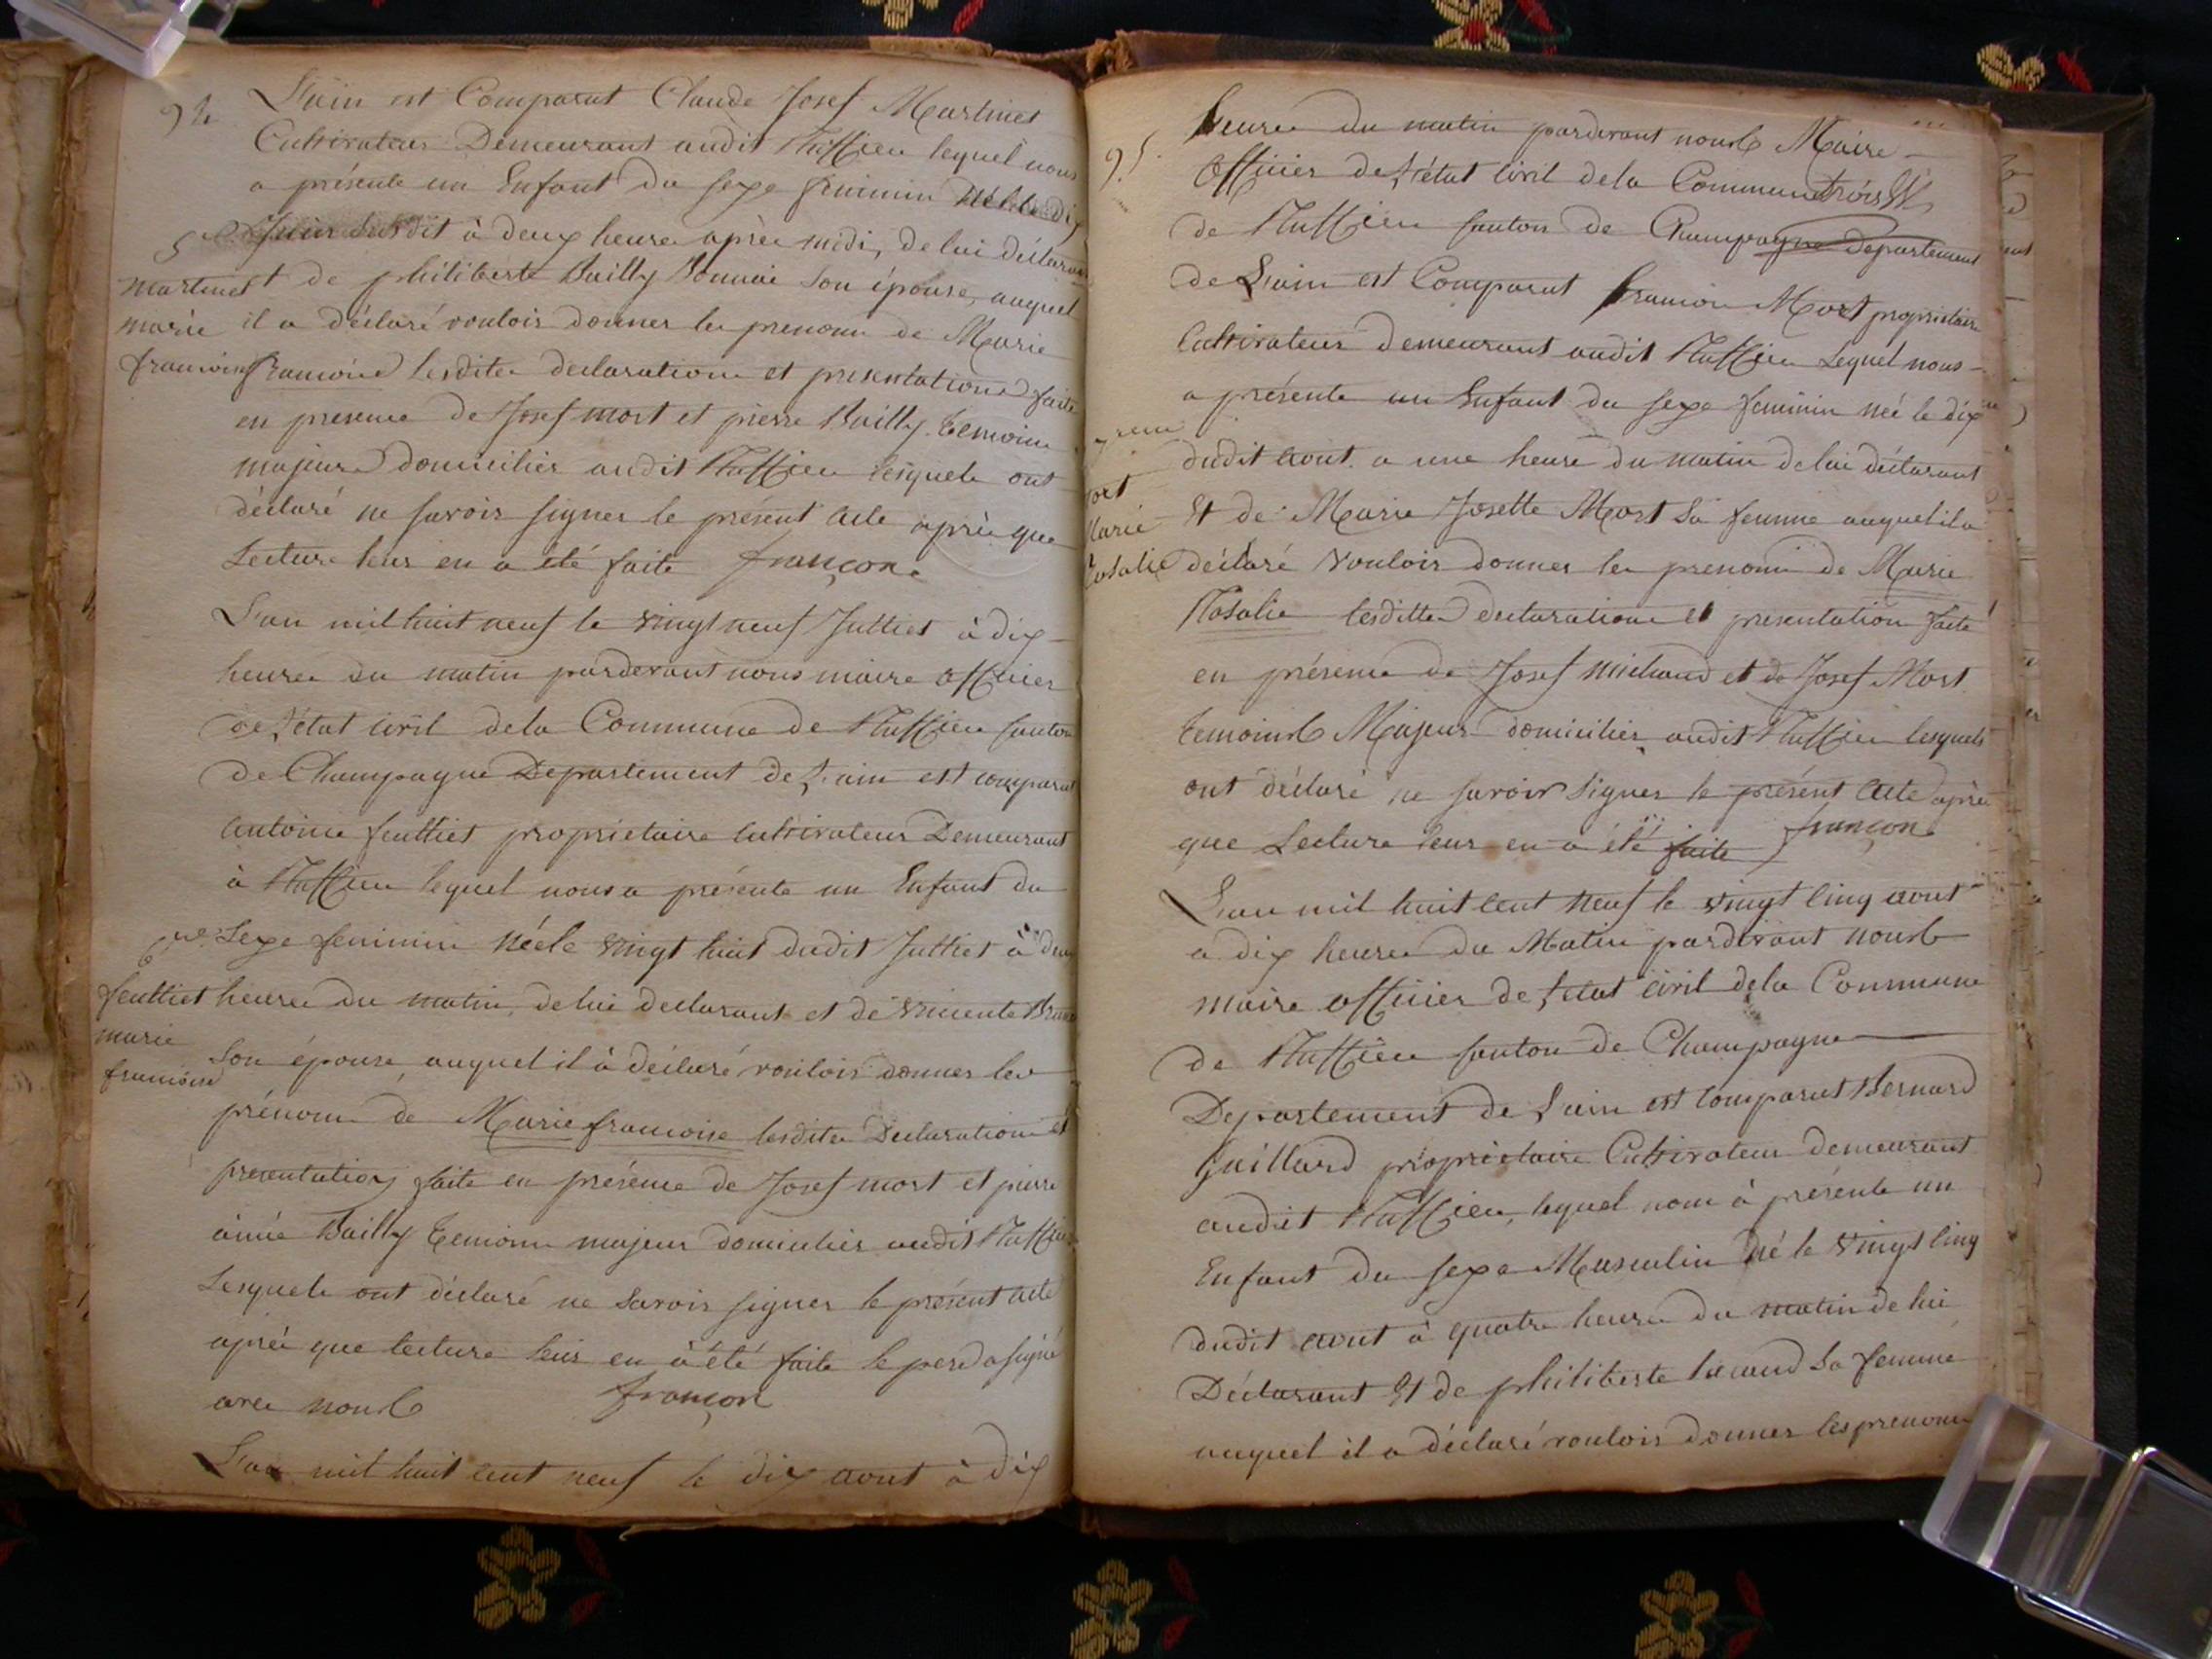 L'ain est Comparut Claude Josef Martinet
Cultivateur Demeurant audit Ruffieu lequel nous
a présente un Enfant du sexe feminin Née le dix
Juin susdit à deux heures après midi, de lui déclarant
5e
Martinet
marie
francoise
et de philiberte Bailly son épouse, auquel
il a déclaré vouloir donner les prenoms de Marie
Francoise lesdites declarations et presentations faite
en presence de Josef mort et pierre Bailly temoins
majeurs domiciliés audit Ruffieu lesquels ont
déclaré ne savoir signer le présent acte après que
Lecture leur en a été faite françon
L'an mil huit neuf le vingt neuf Julliet à dix
heures du matin pardevant nous maire officier
de l'état civil de la Commune de Ruffieu Canton
de Champagne Departement de L'ain est comparut
antoine feulliet proprietaire cultivateur Demeurant
à Ruffieu lequel nous a présente un Enfant du
6me
feulliet
marie
francoise
Sexe feminin Née le vingt huit dudit Julliet à deux
heures du matin, de lui declarant et de vincente
son épouse, auquel il à déclaré vouloir donner les
prénoms de Marie francoise lesdites Declarations et
presentations faite en présence de Josef mort et pierre
ainée Bailly temoins majeurs domiciliés audit Ruffieu
Lesquels ont déclaré ne savoir signer le présent acte
après que lecture leur en à été faite le pere a signé
avec nous françon
L'an mil huit cent neuf le dix aout à dix
95
heures du matin pardevant nous Maire
Officier de l'état civil de la Commune
de Ruffieu Canton de Champagne Departement
de L'ain est Comparut francois Mort proprietaire
Cultivateur Demeurant audit Ruffieu Lequel nous
a présente un Enfant du sexe feminin née le dix
7eme
mort
Marie
Rosalie
dudit aout a une heure du matin de lui déclarant
Et de Marie Josette Mort sa femme auquel il a
déclaré vouloir donner les prenoms de Marie
Rosalie lesdittes declarations et presentation faite
en présence de Josef michaud et de Josef Mort
temoins Majeurs domiciliés audit Ruffieu lesquels
ont déclaré ne savoir signer le présent acte après
que Lecture leur en a été faite françon
L'an mil huit cent neuf le vingt cinq aout
a dix heures du Matin pardevant nous
maire officier de l'etat civil de la Commune
de Ruffieu Canton de Champagne
Departement de L'ain est comparut Bernard
Guillard proprietaire Cultivateur demeurant
audit Ruffieu, lequel nous à présente un
Enfant du sexe Masculin Né le vingt cinq
dudit aout à quatre heures du matin de lui
Déclarant Et de philiberte sa femme
auquel il a déclaré vouloir donner les prenoms